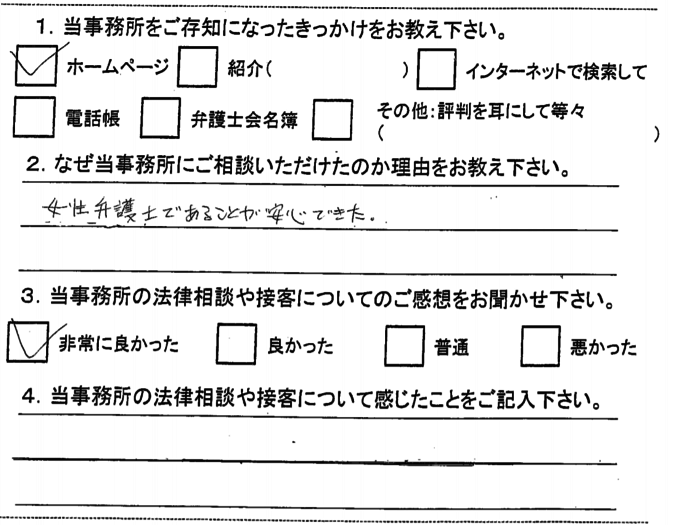 1. 当事務所をご存知になったきっかけをお教え下さい。
ホームページ 紹介( ) インターネットで検索して
電話帳 弁護士会名簿 その他:評判を耳にして等々
( )
2. なぜ当事務所にご相談いただけたのか理由をお教え下さい。
女性弁護士であることが安心できた。
3. 当事務所の法律相談や接客についてのご感想をお聞かせ下さい。
非常に良かった 良かった 普通 悪かった
4. 当事務所の法律相談や接客について感じたことをご記入下さい。